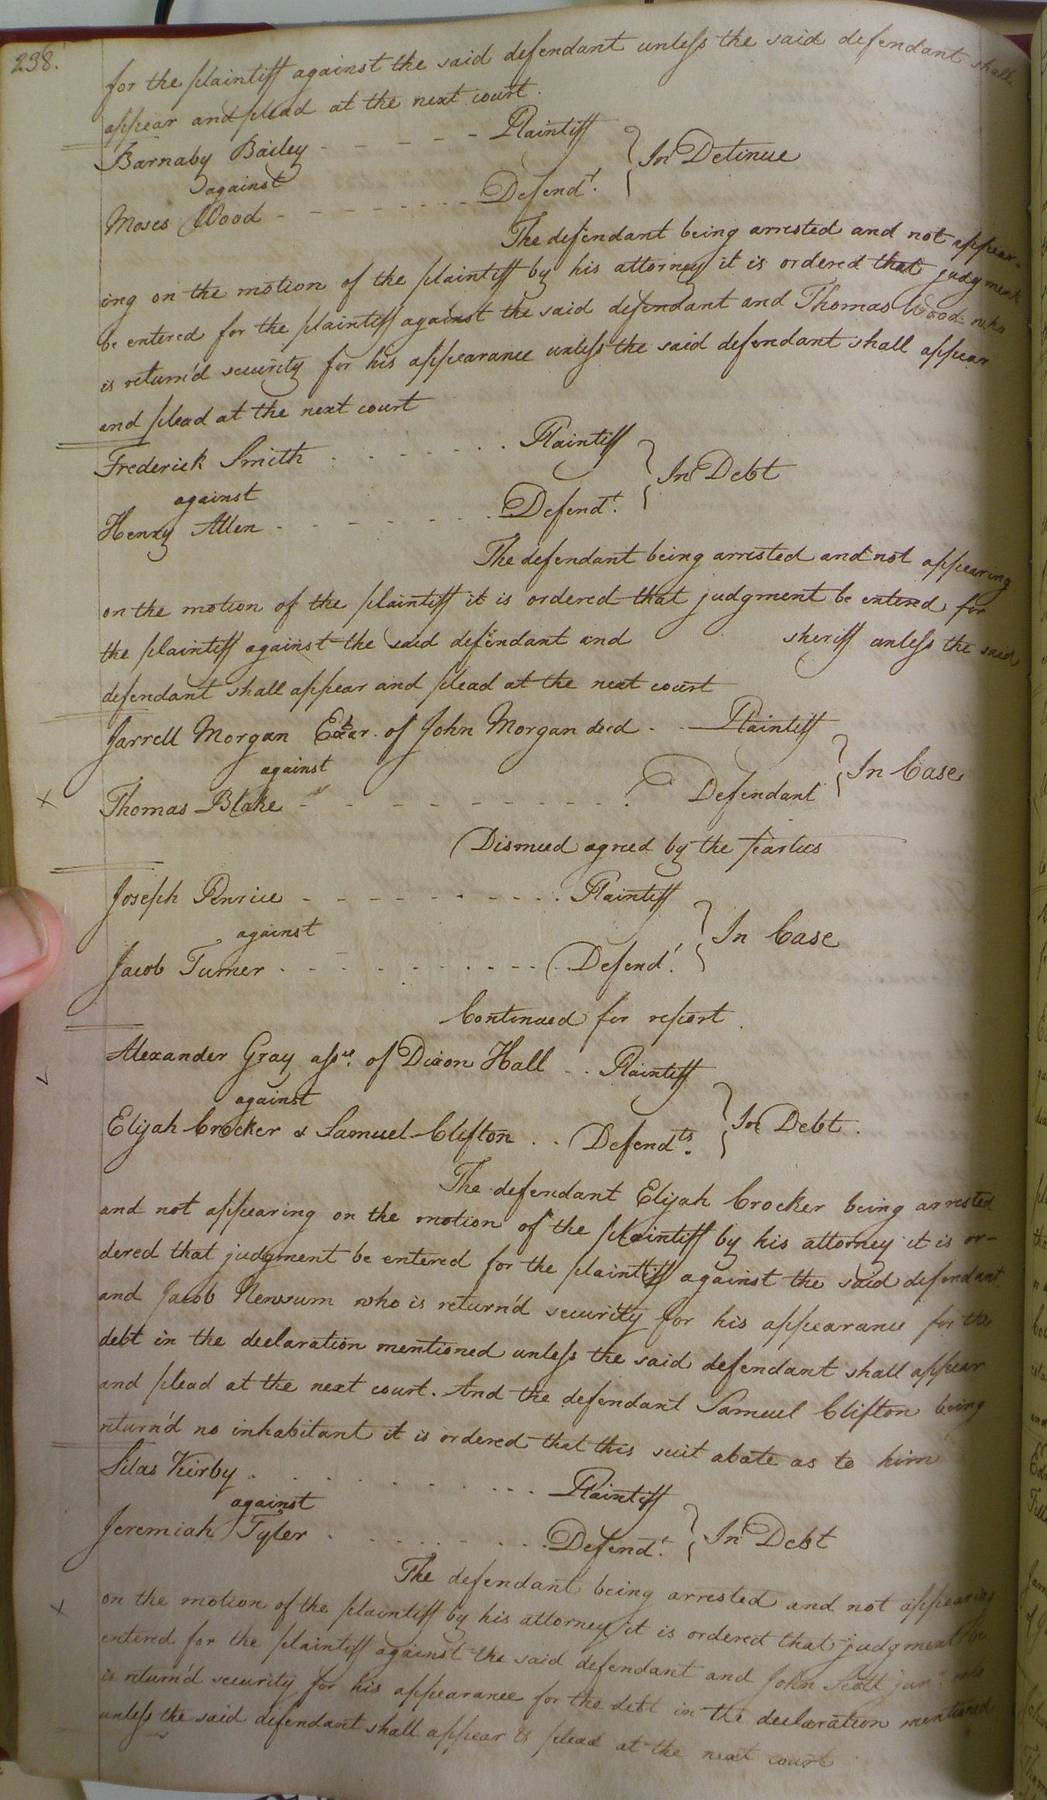 238.
for the plaintiff against the said defendant unless the said defendant shall
appear and plead at the next court.
Barnaby Bailey - - - - - Plaintiff
against } In Detinue
Moses Wood - - - - - - - - Defendt.
The defendant being arrested and not appear-
ing on the motion of the plaintiff by his attorney it is ordered that judgment
be entered for the plaintiff against the said defendant and Thomas Wood who
is return'd security for his appearance unless the said defendant shall appear
and plead at the next court
Frederick Smith . . . . . . . Plaintiff
against } In Debt
Henry Allen - - - - - - - Defendt.
The defendant being arrested and not appearing
on the motion of the plaintiff it is ordered that judgment be entered for
the plaintiff against the said defendant and sheriff unless the said
defendant shall appear and plead at the next court
Jarrell Morgan Exar. of John Morgan decd . . Plaintiff
against } In Case
x Thomas Blake - - - - - - - - - - - Defendant
Dismissed agreed by the parties
Joseph Penrice - - - - - - - - - - Plaintiff
against } In Case
Jacob Turner . - - - - - - - - - - Defendt.
Continued for report.
Alexander Gray asse. of Dixon Hall . . Plaintiff
against } In Debt.
Elijah Crocker & Samuel Clifton . . . Defendts.
The defendant Elijah Crocker being arrested
and not appearing on the motion of the plaintiff by his attorney it is or-
dered that judgment be entered for the plaintiff against the said defendant
and Jacob Newsum who is return'd security for his appearance for the
debt in the declaration mentioned unless the said defendant shall appear
and plead at the next court. And the defendant Samuel Clifton being
return'd no inhabitant it is ordered that this suit abate as to him
Silas Kirby . . . . . . . . . . Plaintiff
against } In Debt
Jeremiah Tyler . . . . . . . . Defendt.
The defendant being arrested and not appearing
x on the motion of the plaintiff by his attorney it is ordered that judgment be
entered for the plaintiff against the said defendant and John Scott junr. who
is return'd security for his appearance for the debt in the declaration mentioned
unless the said defendant shall appear & plead at the next court